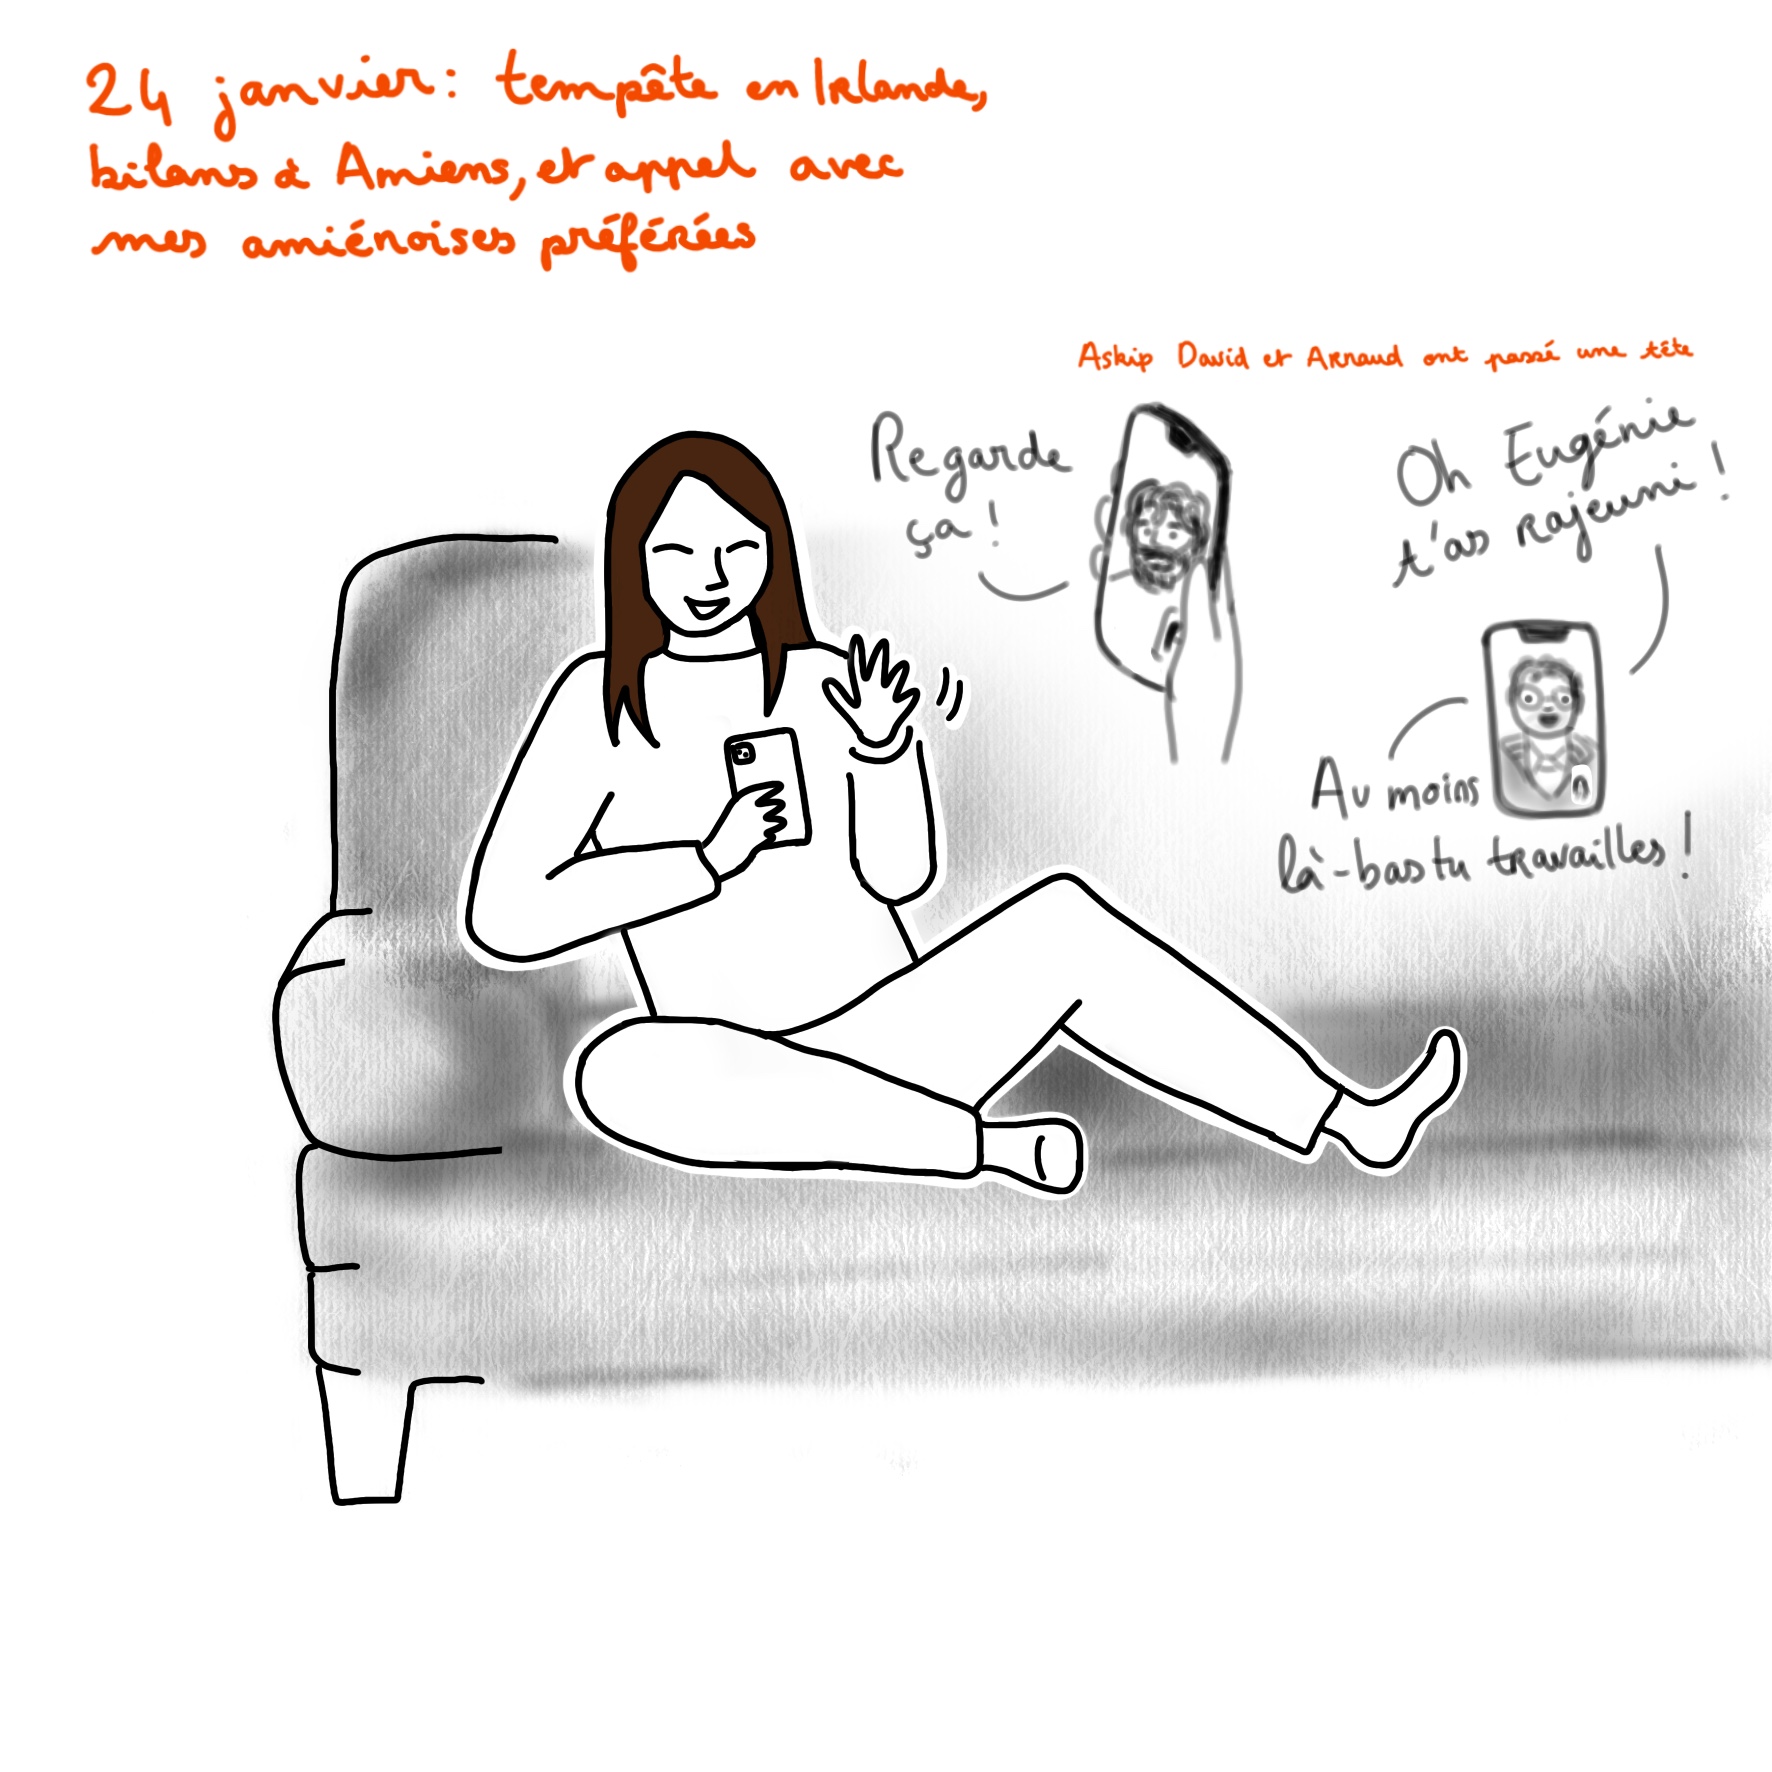 24 janvier : tempête en Irlande,
bilans à Amiens, et appel avec
mes amiénoises préférées
Askip David et Arnaud ont passé une tête
Regarde
ça !
Oh Eugénie
t'as rajeuni !
Au moins
là-bas tu travailles !